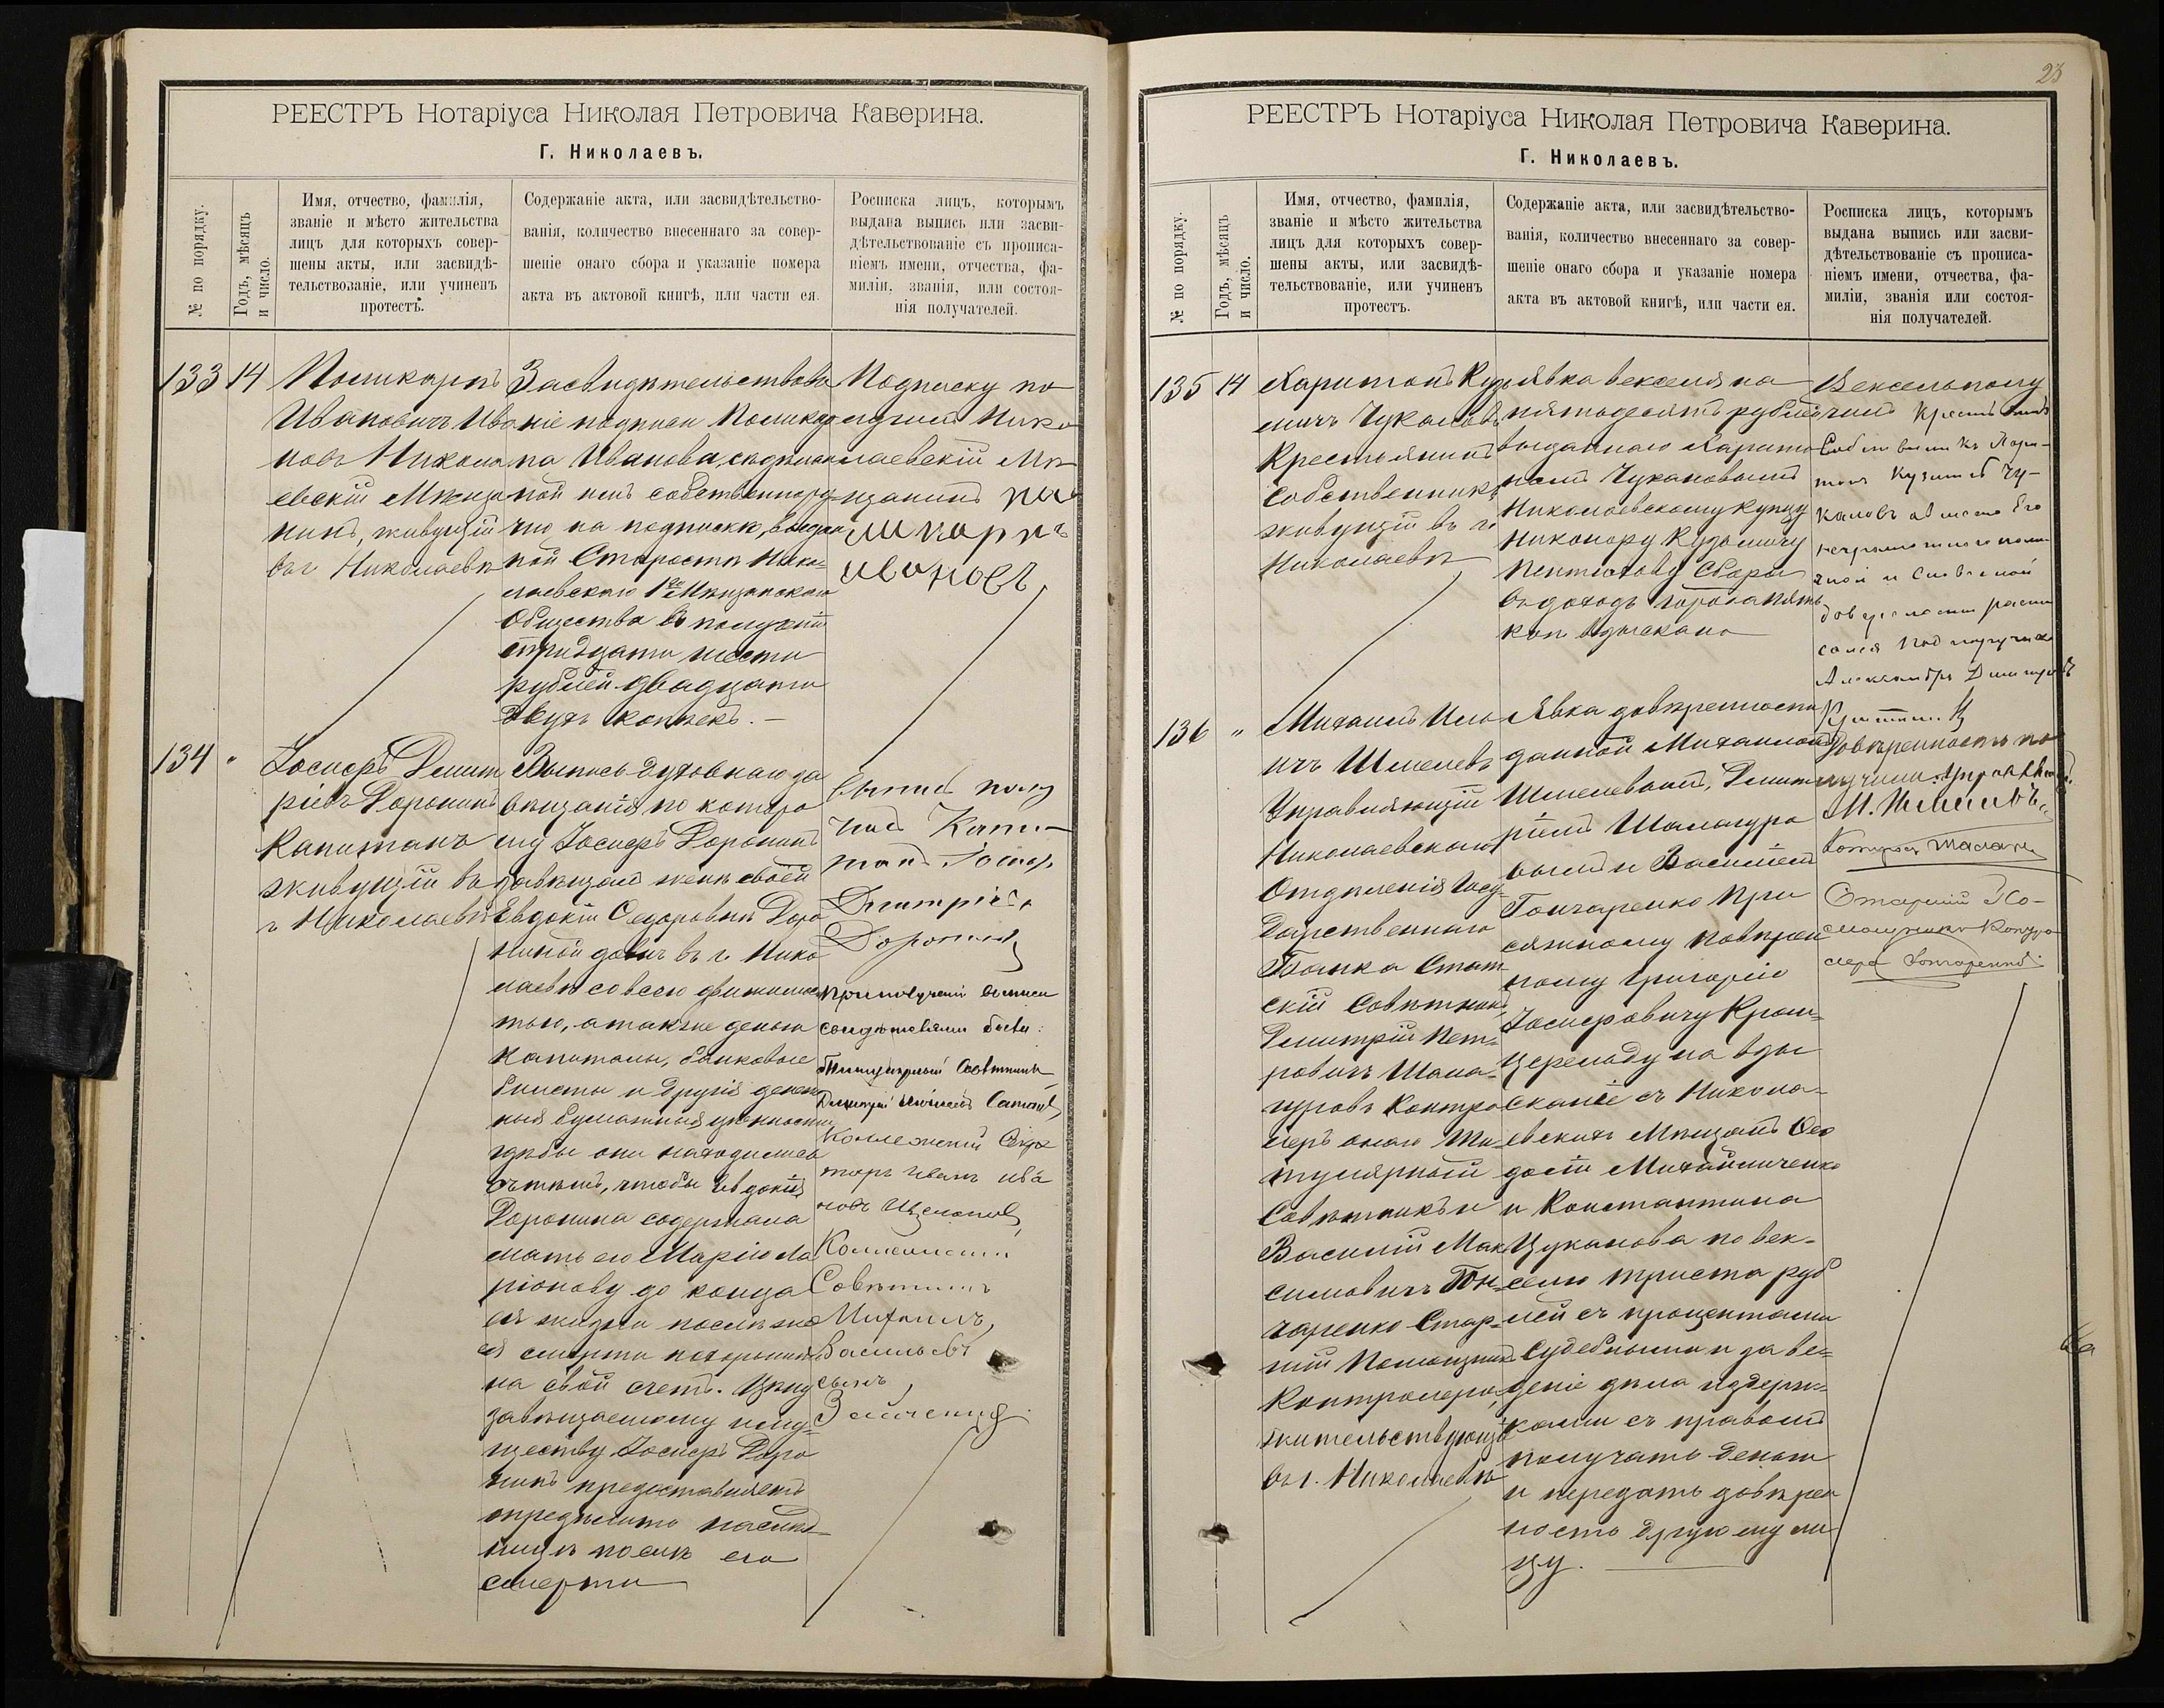 РЕЕСТРЪ Нотаріуса Николая Петровича Каверина.
Г. Николаевъ.
№ по порядку.
Годъ, мѣсяцъ
и число.
Имя, отчество, фамилія,
званіе и мѣсто жительства
лицъ для которыхъ совер-
шены акты, или засвидѣ-
тельствованіе, или учиненъ
протестъ.
Содержаніе акта, или засвидѣтельство-
ванія, количество внесеннаго за совер-
шеніе онаго сбора и указаніе номера
акта въ актовой книгѣ, или части ея.
Росписка лицъ, которымъ
выдана выпись или засви-
дѣтельствованіе съ прописа-
ніемъ имени, отчества, фа-
миліи, званія, или состоя-
нія получателей.
133
14
Поликарпъ
Ивановичъ Ива
новъ Никола
евскій Мѣща
нинъ, живущій
въ г. Николаевѣ
Засвидѣтельствова
ніе подписи Поликар
па Иванова, сдѣлан
ной имъ собственнору
чно на подпискѣ, выдан
ной Старостѣ Нико-
лаевскаго 1го Мѣщанскаго
Общества въ полученіи
тридцати шести
рублей двадцати
двухъ копѣекъ. —
Подписку по
лучилъ Нико
лаевскій Мѣ
щанинъ По
ликарпъ
Ивановъ
134
"
Іосифъ Димит
ріевъ Доронинъ
Капитанъ
живущій въ
г. Николаевѣ
Выпись духовнаго за
вѣщанія по которо
му Іосифъ Доронинъ
завѣщалъ женѣ своей
Евдокіи Ѳедоровнѣ Доро
ниной домъ въ г. Нико
лаевѣ со всею движимос
тью, а также деньги
капиталы, банковые
билеты и другія денеж
ныя бумажныя цѣнности
гдѣбы они находились
съ тѣмъ, чтобы Евдокія
Доронина содержала
мать его Марію Ла
ріонову до конца
ея жизни послѣ же
ея смерти похоронила
на свой счетъ. Цѣну
завѣщаемому иму-
ществу Іосифъ Доро
нинъ предоставляетъ
опредѣлить наслѣд-
ницѣ послѣ его
смерти
Выпись полу
чилъ Капи-
танъ Іосиф
Дмитріевъ
Доронинъ
При полученіи выписи
свидѣтелями были:
Титулярный Совѣтникъ
Коллежскій Секре
таръ Иванъ Ива
новъ
Коллежскій
Совѣтникъ
Михаилъ
Васильевъ
сынъ
23
РЕЕСТРЪ Нотаріуса Николая Петровича Каверина.
Г. Николаевъ.
№ по порядку.
Годъ, мѣсяцъ
и число.
Имя, отчество, фамилія,
званіе и мѣсто жительства
лицъ для которыхъ совер-
шены акты, или засвидѣ-
тельствованіе, или учиненъ
протестъ.
Содержаніе акта, или засвидѣтельство-
ванія, количество внесеннаго за совер-
шеніе онаго сбора и указаніе номера
акта въ актовой книгѣ, или части ея.
Росписка лицъ, которымъ
выдана выпись или засви-
дѣтельствованіе съ прописа-
ніемъ имени, отчества, фа-
миліи, званія или состоя-
нія получателей.
135
14
Харитонъ Кузь
мичъ Чукановъ
Крестьянинъ
собственникъ
живущій въ г.
Николаевѣ
Явка векселя на
пятьдесятъ рублей
выданнаго Харито
номъ Чукановымъ
Николаевскому Купцу
Никонору Кузьмичу
Сборъ
въ доходъ города пять
коп взыскано
Вексель полу
чилъ Крестьянинъ
Собственникъ Хари-
тонъ Кузьмичъ Чу-
кановъ а вмѣсто его
неграмотнаго по лич
ной и словесной
довѣренности распи
сался Подпоручикъ
Александръ Димитріевъ
136
"
Михаилъ Иль
ичъ Шмелевъ
Управляющій
Николаевскаго
Отдѣленія Госу-
дарственнаго
Банка Стат
скій Совѣтникъ,
Димитрій Пет-
ровичъ Шала-
гуровъ Контро
леръ онаго Ти-
тулярный
Совѣтникъ и
Василій Мак
симовичъ Гон-
чаренко Стар-
шій Помощникъ
Контролера,
жительствующіе
въ г. Николаевѣ
Явка довѣренности
данной Михаиломъ
Шмелевымъ, Димит
ріемъ Шалагуро
вымъ и Василіемъ
Гончаренко При
сяжному Повѣрен
ному Григорію
Іосифовичу Кром-
церемоду на взы
сканіе съ Никола-
евскихъ Мѣщанъ Ѳео
досія Михайличенко
и Константина
Цуканова по век-
селю триста руб
лей съ процентами
судебными и за ве-
деніе дѣла издерж-
ками съ правомъ
получать деньги
и передать довѣрен
ность другому ли-
цу.
Довѣренность по
лучили: Управляющ.
М. Шмелевъ,
Контролеръ Шалагу
Старшій По-
мощникъ Контро
лера Гончаренко